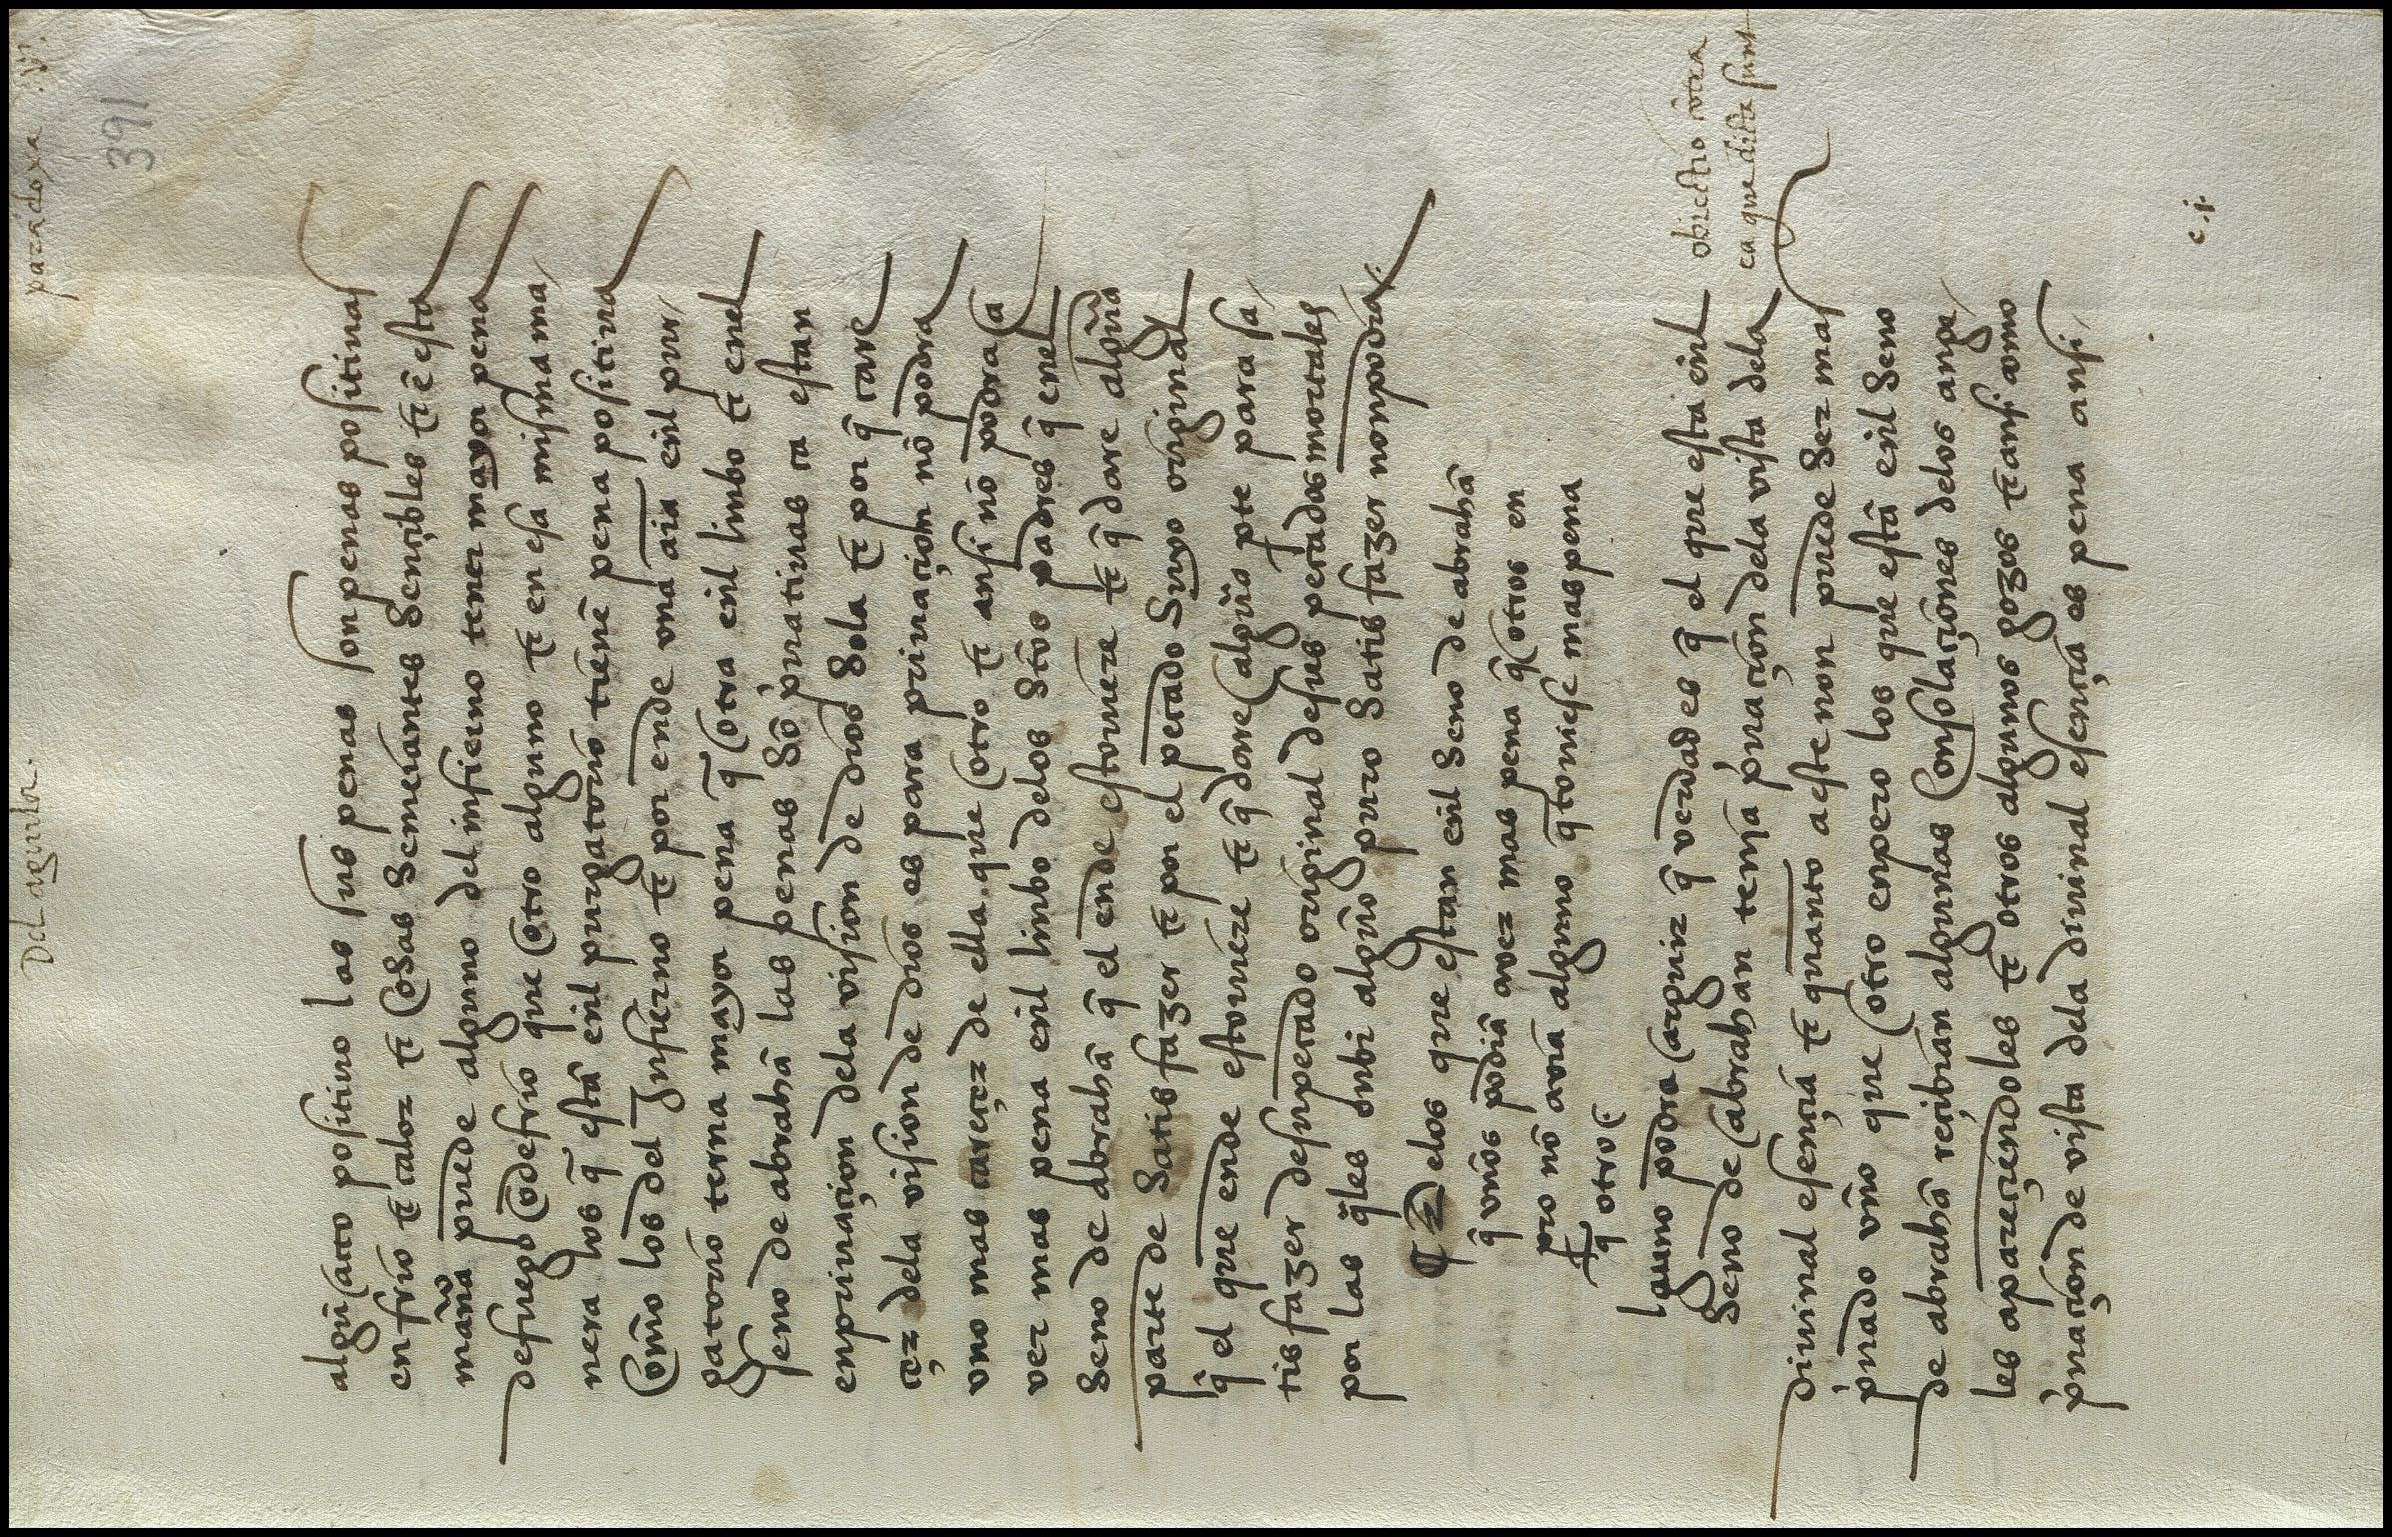 Del aguila. paradoxa .vi.
391
algũ acto positiuo las sus penas son penas positiuas
en frio τ calor τ cosas semeiantes sencibles τ ẽ esta
mana° puede alguno del infierno tener mayor pena
de fuego o de frio que otro alguno τ en esa misma ma
nera los q̃ estã enl purgatorio tienẽ pena positiua
como los del Infierno τ por ende vna aīa enl pur
gatorio terna mayor pena q̃ otra enl limbo τ enel
seno de abrahã las penas sõ pͥuatiuas ca estan
en priuaçion dela vision de dios sola τ por q̃ care
çer dela vision de dios es pura priuaçion nõ podra
vno mas careçer de ella que otro τ ansi nõ podra a
ver mas pena enl limbo delos sc̃os padres q̃ enel
seno de abrahã q̃ el ende estouiere τ q̃ dare algũa
parte de satisfazer τ por el pecado suyo original
q̃ el que ende estouiere τ q̃ dare algũo pte para sa
tisfazer de su pecado original de sus pecados mortales
por las q̃les dubi algũo puro satisfazer non podra.
¶ Delos que estan enl seno de abrahã
q̃ vños podiã aver mas pena q̃ otros en
pro nõ avia alguno q̃ touiese mas pena
q̃ otro.
lguno podra arguir q̃ verdad es q̃ el que esta enl
seno de abrahan tenia pͥuaçion dela vista dela
diuinal esençia τ quanto a este non puede ser mas
pͥuado vño que otro enpero los que estã enl seno
de abrahã reçibian algunas consolaçiones delos ange
les apareçiendoles τ otros algunos gozos τ ansi como
pͥuaçion de vista dela diuinal esençia es pena ansi
obiectio cõtra
ea que dicta sunt
c.j.